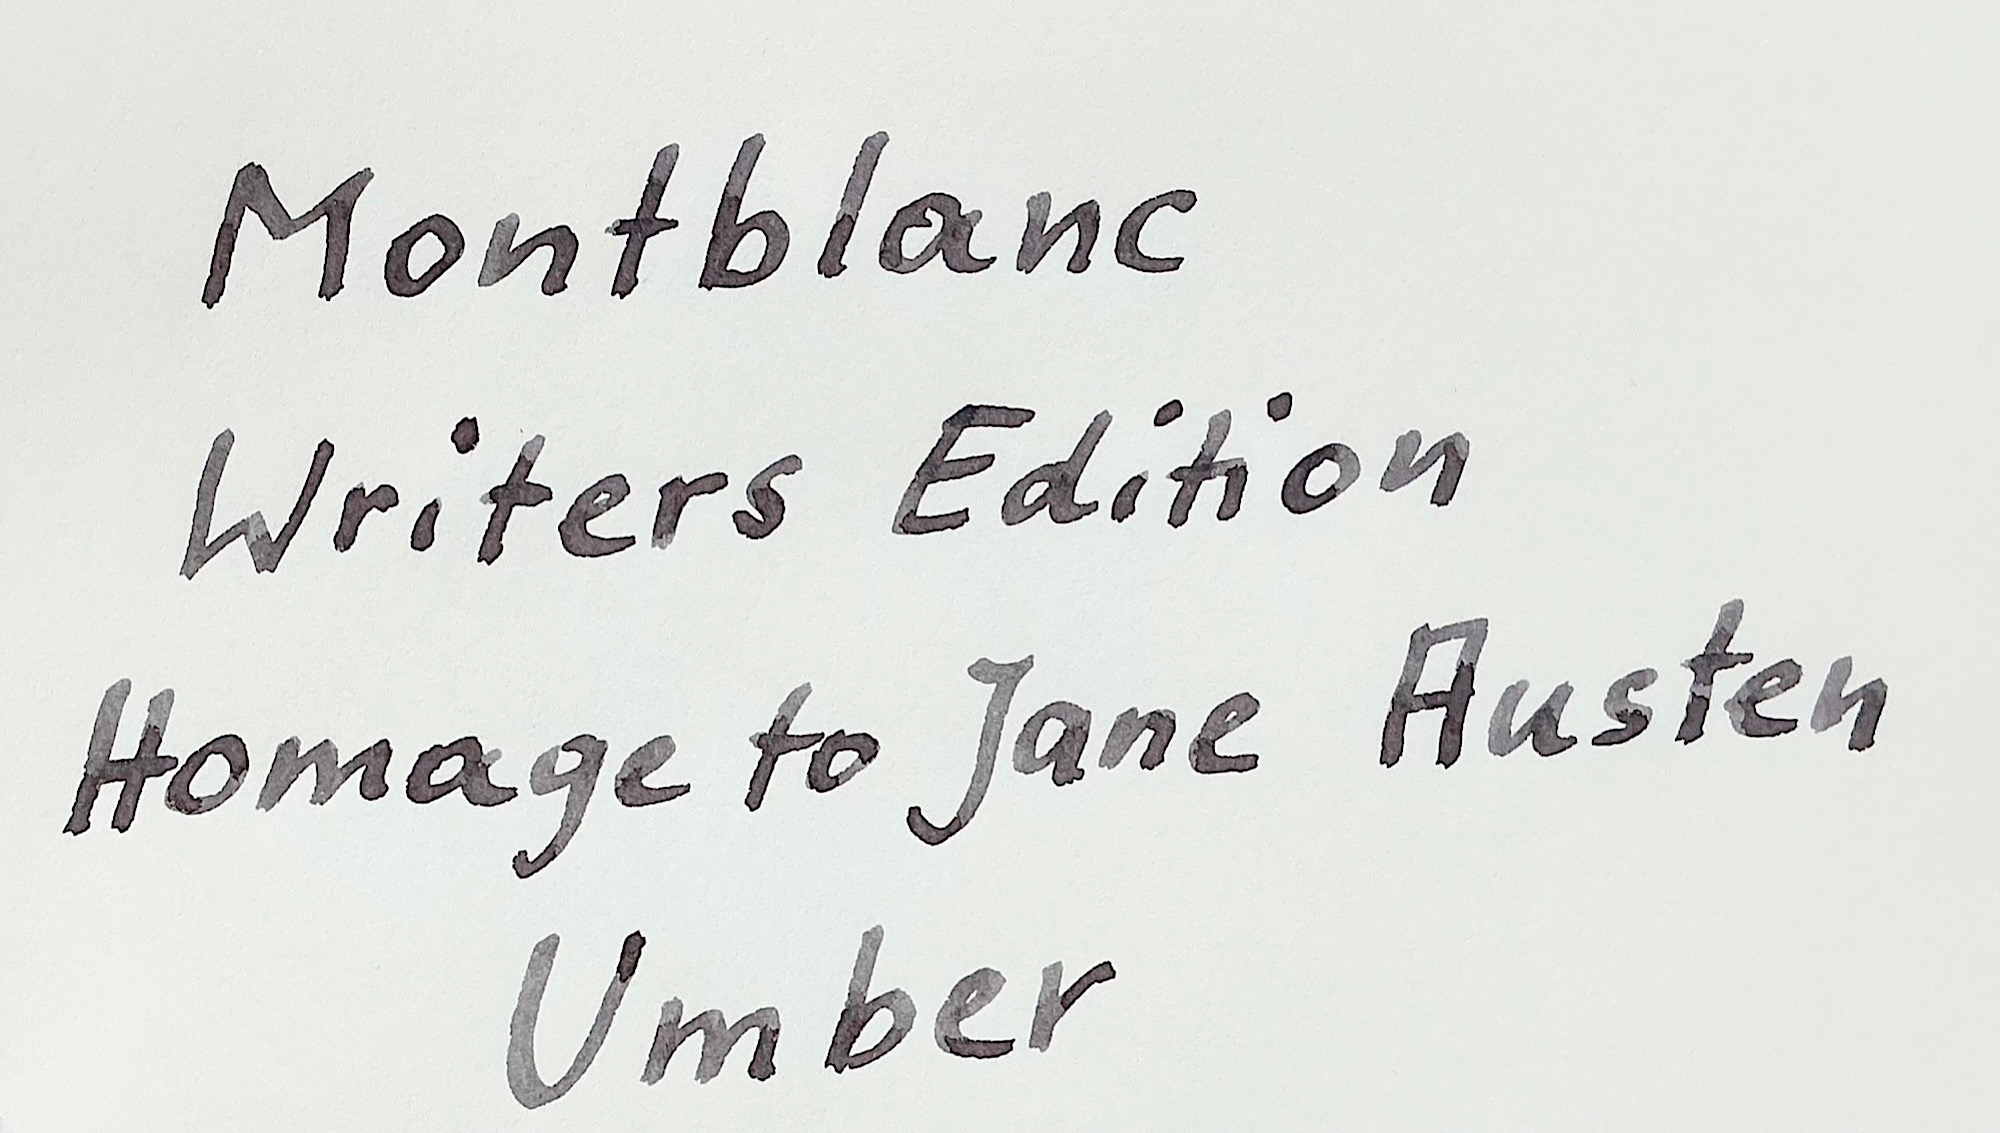 Montblanc
Writers Edition
Homage to Jane Austen
Umber